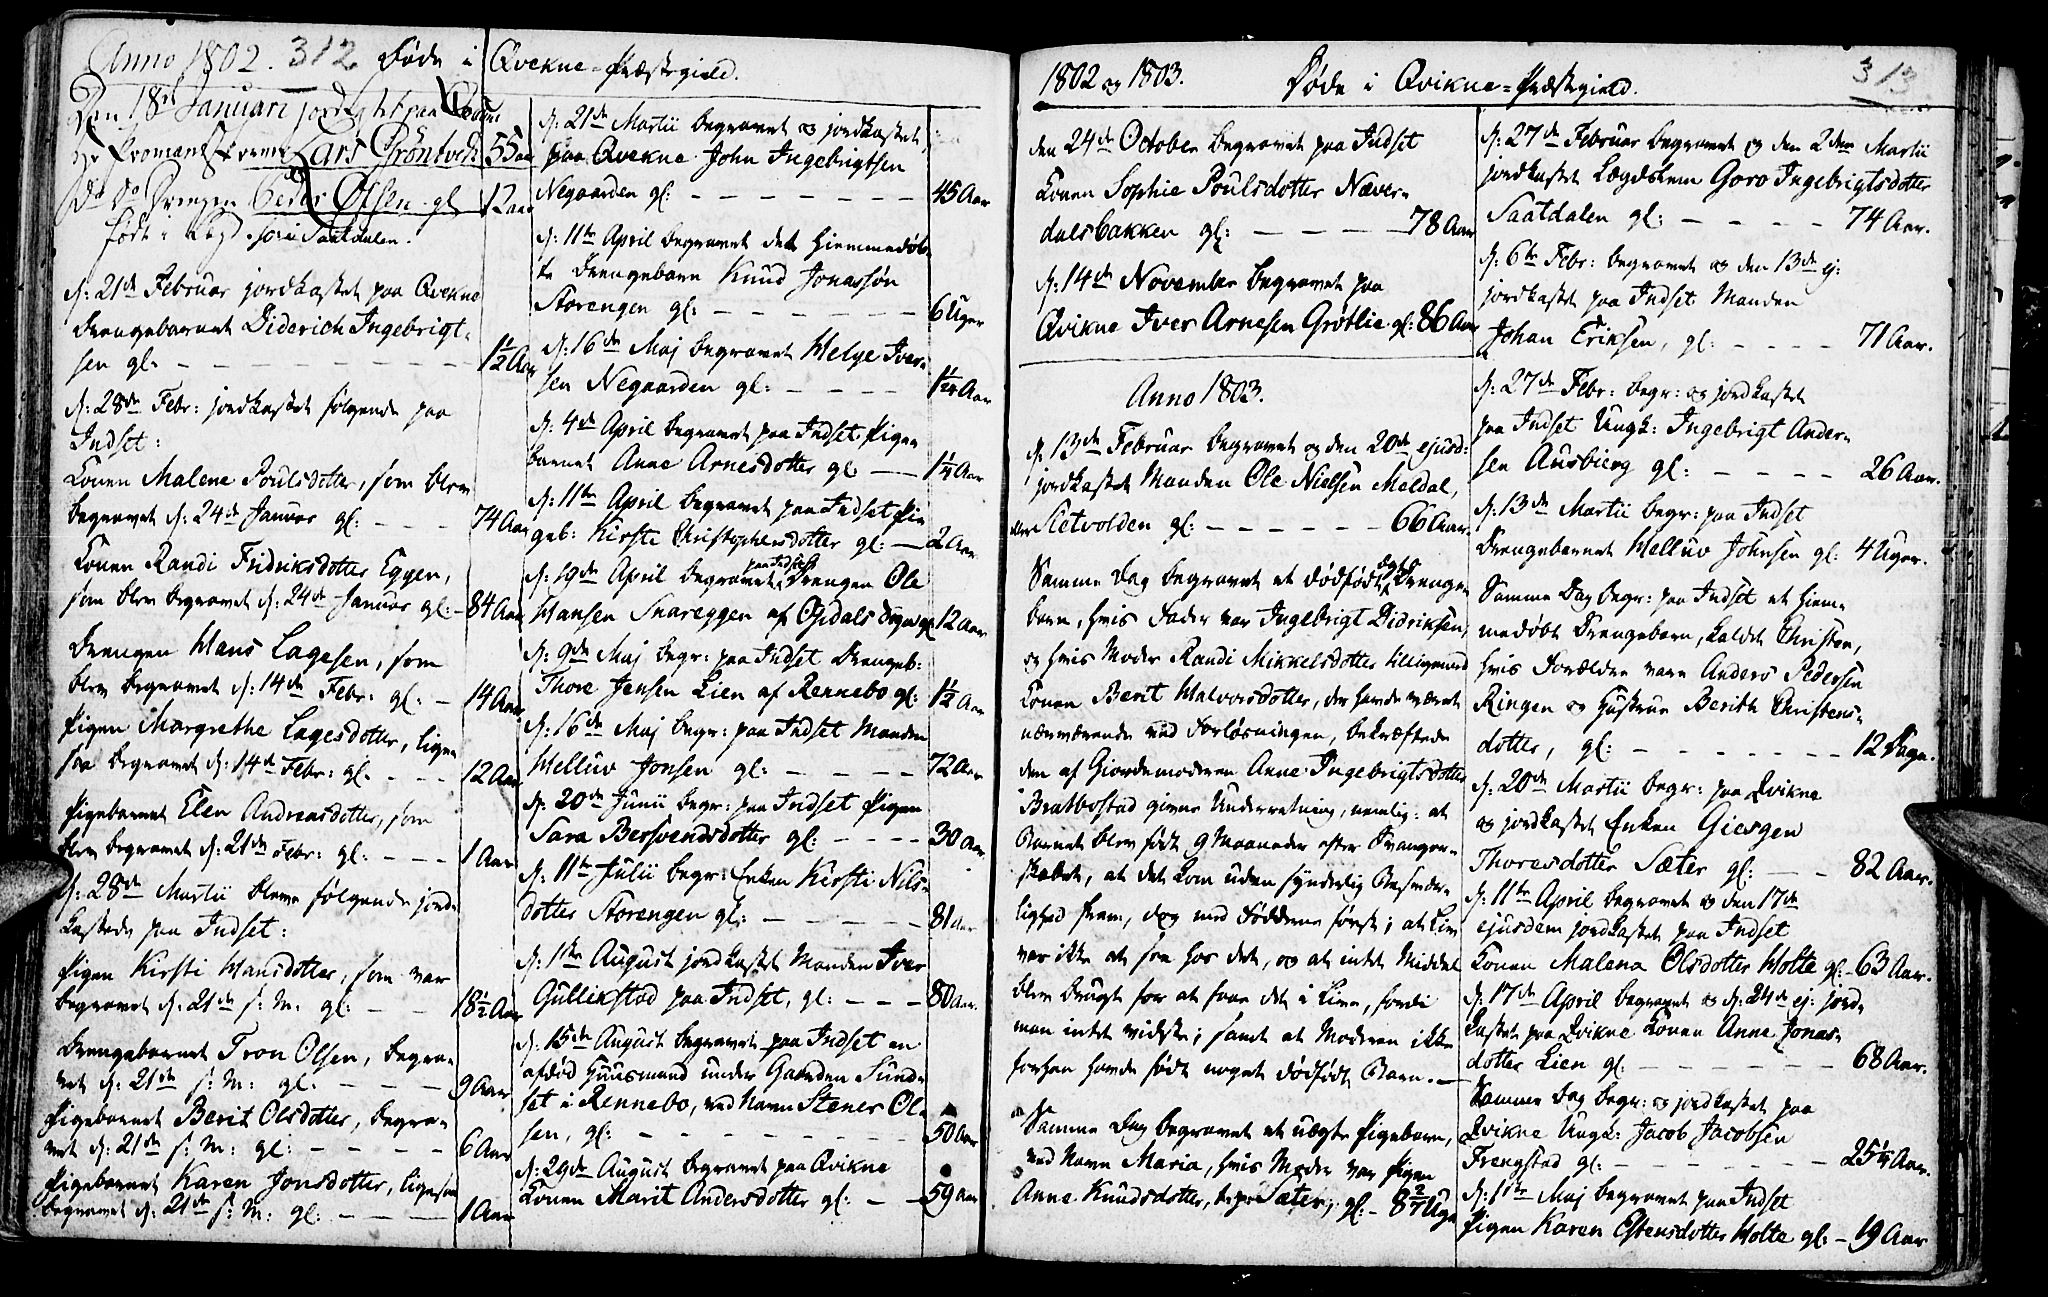 Anno 1802. 312 Døde i Qvekne-Præstegield.
Den 18de Januari jordfæstet paa Qvekne
Lars Gröntvedt 55 aar
do do Drengen Peder Olsen gl 12 aar
født i Saatdalen.
d: 21de Februar jordkastet paa Qvekne
Drengebarnet Diderich Ingebrigt-
sen gl: – – – 1½ Aar
d: 28de Febr: jordkastet følgende paa
Indset:
Konen Malene Poulsdotter, som blev
begravet d: 24de Januar gl: – – – 74 Aar
Konen Randi Fridriksdotter Eggen,
som blev begravet d: 24de Januar gl: – 84 Aar
Drengen Hans Lagesen, som
blev begravet d: 14de Febr: gl: – 14 Aar
Pigen Margrethe Lagesdotter, lige-
saa begravet d: 14de Febr: gl: – – – 12 Aar
Pigebarnet Elen Andreasdotter, som
blev begravet d: 21de Febr: gl: – – – 1 Aar
d: 28de Martii bleve følgende jord-
kastede paa Indset:
Pigen Kirsti Hansdotter, som var
begravet d: 21de s: M: gl: – – 18½ Aar
Drengebarnet Tron Olsen, begra-
vet d: 21de s: M: gl: – – – 9 Aar
Pigebarnet Berit Olsdotter, begra-
vet d: 21de s: M: gl: – – – – 6 Aar
Pigebarnet Karen Jonsdotter, ligesaa
begravet d: 21de s: M: gl: – – – 1 Aar
d: 21de Martii begravet og jordkastet
paa Qvekne John Ingebrigtsen
Negaarden gl: – – – – – – 45 Aar
d: 11te April begravet det hiemmedøb-
te Drengebarn Knud Jonassøn
Storengen gl: – – – – – – 6 Uger
d: 16de Maj begravet Helge Iver-
sen Negaarden gl: – – – – 1¼ Aar
d: 4de April begravet paa Indset Pige-
barnet Anne Arnesdotter gl: – 1¼ Aar
d: 11te April begravet paa Indset Pi-
geb: Kirsti Christophersdotter gl: – 2 Aar
d: 19de April begravet paa Indset Drengen Ole
Hansen Snareggen af Opdals Sogn gl 12 Aar
d: 9de Maj begr: paa Indset Drengeb:
Thore Jensen Lien af Rennebo gl: 1½ Aar
d: 16de Maj begr: paa Indset Manden
Helluv Jonsen gl: – – – – 72 Aar
d: 20de Junii begr: paa Indset Pigen
Sara Bersvendsdotter gl: – – – 30 Aar
d: 11te Julii begr: Enken Kirsti Nils-
dotter Storengen gl: – – – – – 81 aar
d: 1ste August jordkastet Manden Iver
Gullikstad paa Indset, gl: – – – 80 aar.
d: 15de August begravet paa Indset en
afdød Huusmand under Gaarden Sund-
set i Rennebo, ved Navn Stener Ol-
sen, gl: – – – – – – – 50 Aar
d: 29de August begravet paa Qvikne
Konen Marit Andersdotter gl: – – 59 aar
1802 og 1803. Døde i Qvikne-Præstegield. 313
den 24de October begravet paa Indset
Konen Sophie Poulsdotter Næver-
dalsbakken gl: – – – – 78 Aar
d: 14de November begravet paa
Qvikne Iver Arnesen Grøtlie gl: 86 Aar
Anno 1803.
d: 13de Februar begravet og den 20de ejusd:
jordkastet Manden Ole Nielsen Meldal,
eller Sletvolden gl: – – – – – – 66 Aar.
Samme Dag begravet et dødfødt Drenge-
barn, hvis Fader var Ingebrigt Didriksen,
og hvis Moder Randi Mikkelsdotter tilligemed
Konen Berit Halvorsdotter, der havde været
nærværende ved Forløsningen, bekræftede
den af Giordemoderen Anne Ingebrigtsdotter
Bratbostad givne Underretning, nemlig: at
Barnet blev født 9 Maaneder efter Svanger-
skabet, at det kom uden synderlig Besvær-
lighed frem, dog med Fødderne først; at Liv
var ikke at see hos det, og at intet Middel
blev brugt for at faae det i Live, fordi
man intet vidste; samt at Moderen ikke
forhen havde født noget dødfødt Barn. –
Samme Dag begravet et uægte Pigebarn,
ved Navn Maria, hvis Moder var Pigen
Anne Knudsdotter, Sæter, gl: – 8 2/7 Uge
d: 27de Februar begravet og den 2den Martii
jordkastet Lægdslem Goro Ingebrigtsdotter
Saatdalen gl: – – – – 74 Aar.
d: 6te Febr: begravet og den 13de ej:
jordkastet paa Indset Manden
Johan Eriksen, gl: – – – – 71 Aar.
d: 27de Febr: begr: og jordkastet
paa Indset Ungk: Ingebrigt Ander-
sen Ausbierg gl: – – – – 26 Aar.
d: 13de Martii begr: paa Indset
Drengebarnet Helluv Johnsen gl: 4 Uger.
Samme Dag begr: paa Indset et hiem-
medøbt Drengebarn, kaldet Christen,
hvis Forældre vare Anders Pedersen
Ringen og Hustrue Berith Christens-
dotter, gl: – – – – – – 12 Dage.
d: 20de Martii begr: paa Qvikne
og jordkastet Enken Giesgen
Thoresdotter Sæter gl: – – 82 Aar.
d: 11te April begravet og den 17de
ejusdem jordkastet paa Indset
Konen Malena Olsdotter Holte gl: – 63 Aar.
d: 17de April begravet og d: 24de ej: jord-
kastet paa Qvikne Konen Anne Jonas-
dotter Lien gl: – – – – – – 68 Aar.
Samme Dag begr: og jordkastet paa
Qvikne Ungk: Jacob Jacobsen
Frengstad gl: – – – – – – 25¼ Aar.
d: 1ste Maj begravet paa Indset
Pigen Karen Estensdotter Holte gl: – 19 Aar